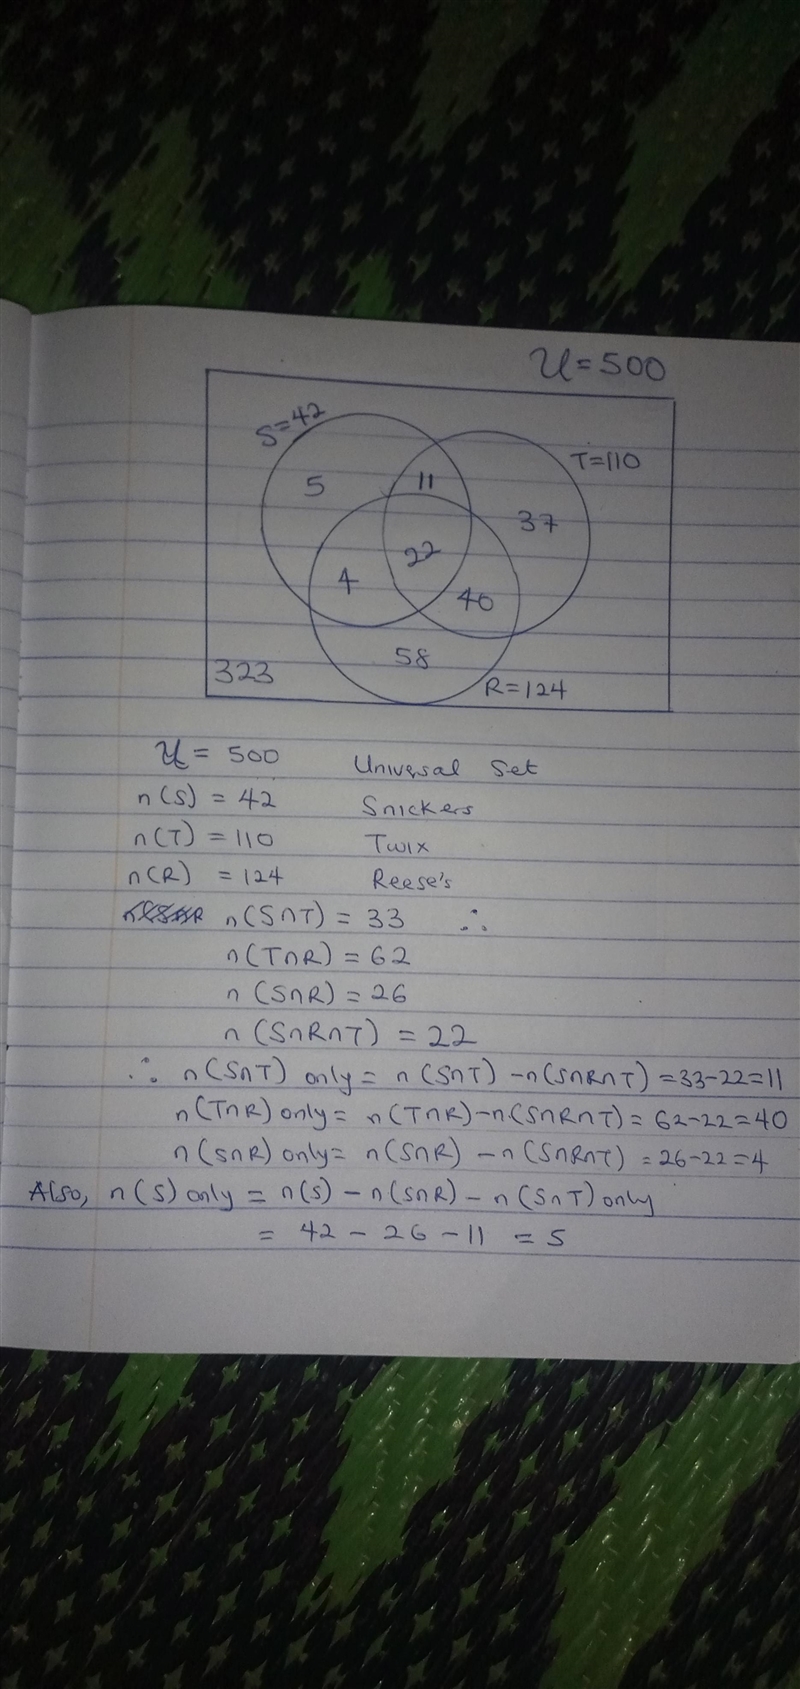 U = 500
S=42
T=110
5
11
37
22
4
40
58
323
R=124
U = 500 Universal Set
n(S) = 42 Snickers
n(T) = 110 Twix
n(R) = 124 Reese's
n(S∩T) = 33 ∴
n(T∩R) = 62
n(S∩R) = 26
n(S∩R∩T) = 22
∴ n(S∩T) only = n(S∩T) - n(S∩R∩T) = 33-22=11
n(T∩R) only = n(T∩R) - n(S∩R∩T) = 62-22=40
n(S∩R) only = n(S∩R) - n(S∩R∩T) = 26-22=4
Also, n(S) only = n(S) - n(S∩R) - n(S∩T) only
= 42 - 26 - 11 = 5